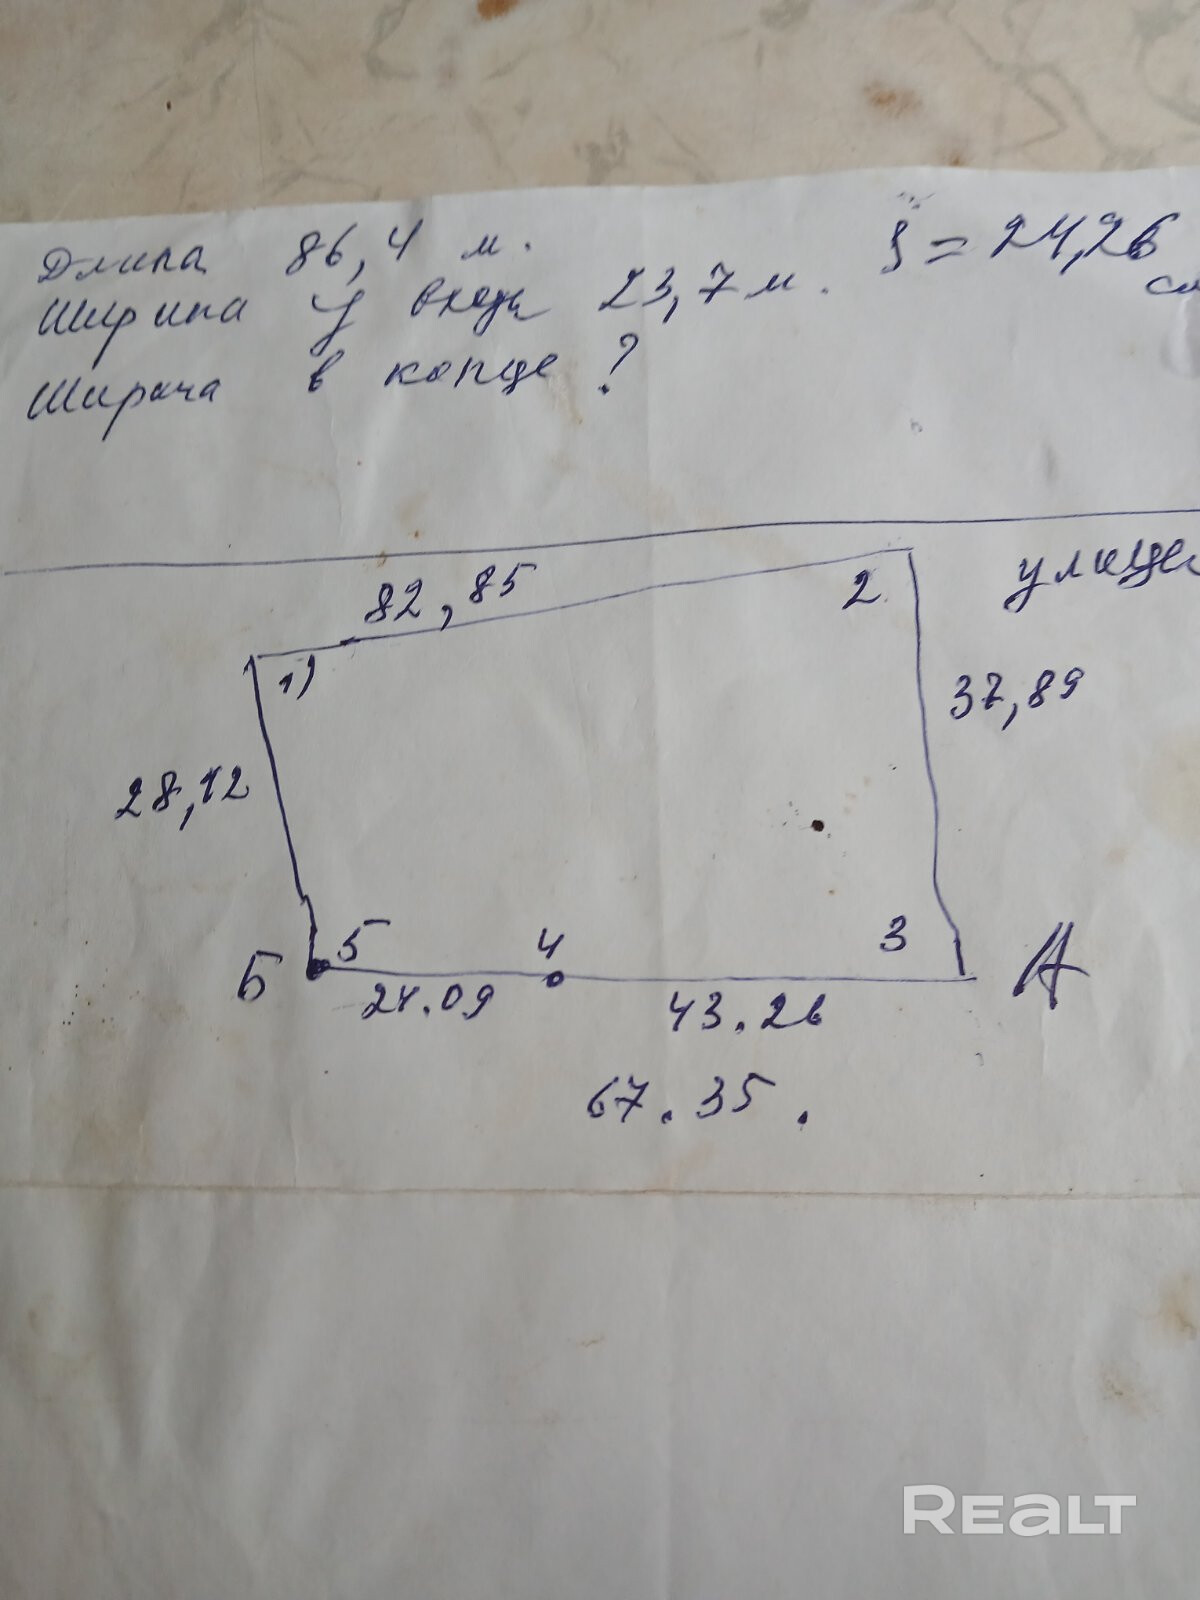 Длина 86,4 м.
Ширина у входа 23,7 м.
Ширина в конце ?
S = 24,26
улице
82,85
1)
2
37,89
28,12
Б
5
4
3
А
24.09
43.26
67.35.
REALT